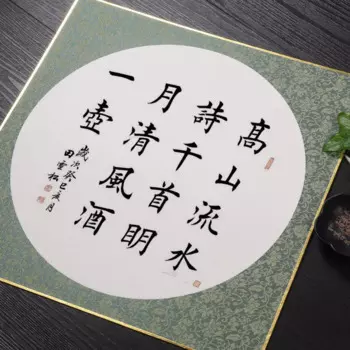 高山流水
詩千首明
月清風酒
一壺
歲次癸巳月
田雪松